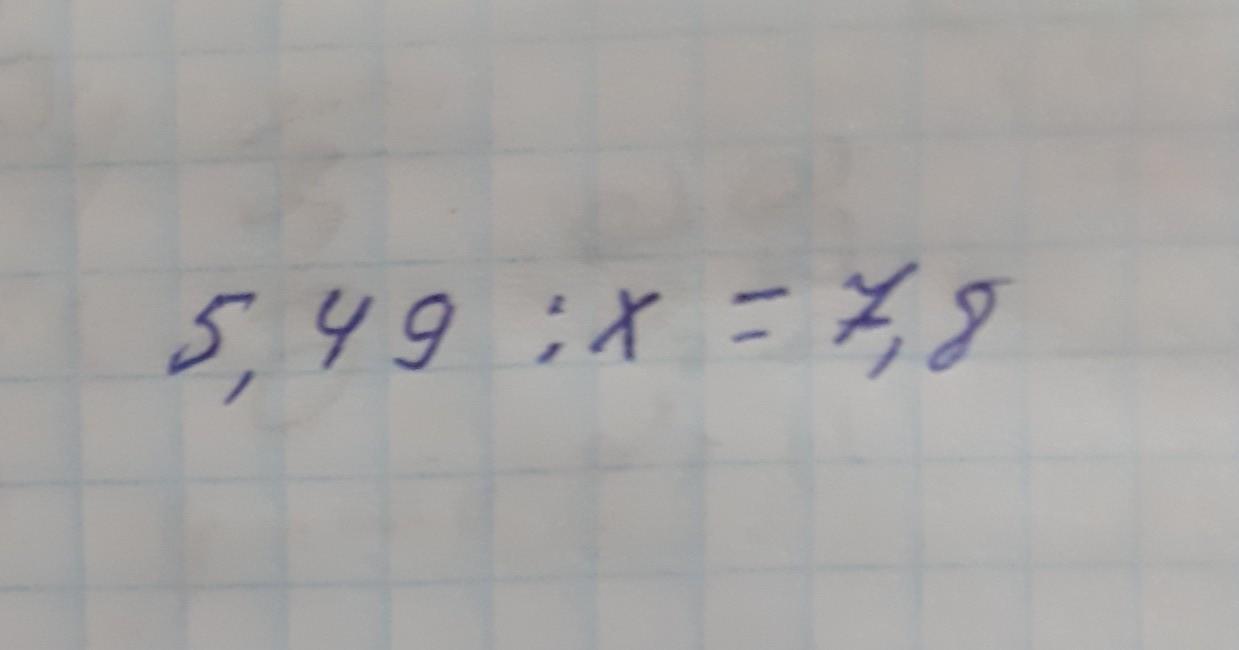 5,49 : x = 7,8